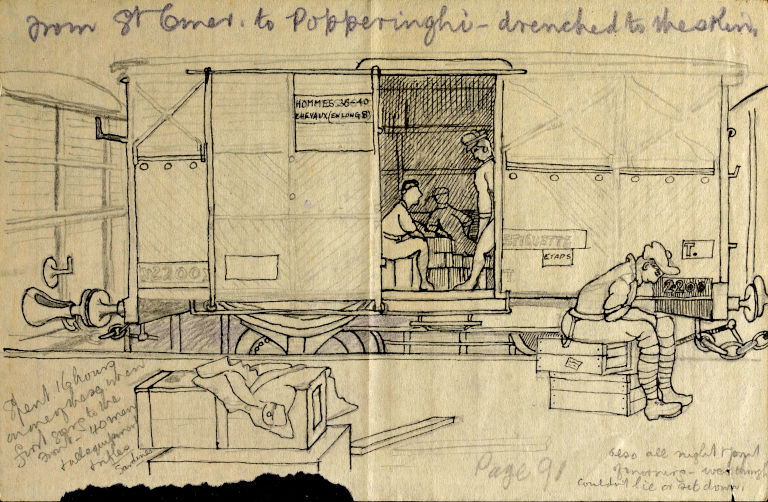 From St Omer. to Popperinghi - drenched to the skin.
HOMMES 36-40
CHEVAUX (EN LONG 8)
ETIQUETTE
ETAPS
T.
2200
2200
Spent 16 hours
in one of these when
first sent to the
front - 40 men
& all equipment
& rifles
Sardines
Page 91
also all night & part
of morning -
couldn't lie or sit down.